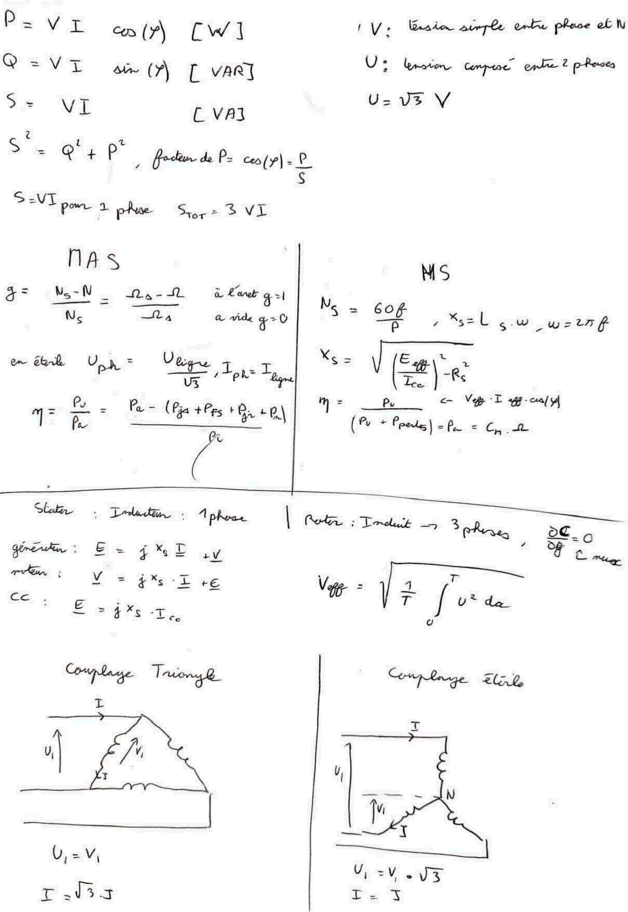 P = V I cos(φ) [W]
Q = V I sin(φ) [VAR]
S = VI [VA]
S² = Q² + P², facteur de P = cos(φ) = P/S
S = VI pour 1 phase S_TOT = 3 VI
V : tension simple entre phase et N
U : tension composé entre 2 phases
U = √3 V
MAS
g = (N_s - N)/N_s = (Ω_s - Ω)/Ω_s à l'aret g=1
a vide g=0
en étoile U_ph = U_ligne/√3, I_ph = I_ligne
η = P_u/P_a = (P_a - (P_js + P_fs + P_jr + P_m))/P_a
MS
N_s = 60f/P, X_s = L_s·ω, ω = 2πf
X_s = √((E_eff/I_cc)² - R_s²)
η = P_u/(P_u + P_pertes) = P_a = C_m·Ω ← V_eff·I_eff·cos(φ)
Stator : Inducteur : 1 phase
générateur : E = j X_s I + V
moteur : V = j X_s · I + E
CC : E = j X_s · I_cc
Rotor : Induit → 3 phases, ∂C/∂g = 0
C
V_eff = √(1/T ∫₀ᵀ U² da)
Couplage Triangle
I
U₁
V₁
J
U₁ = V₁
I = √3·J
Couplage étoile
I
U₁
N
V₁
J
U₁ = V₁ · √3
I = J